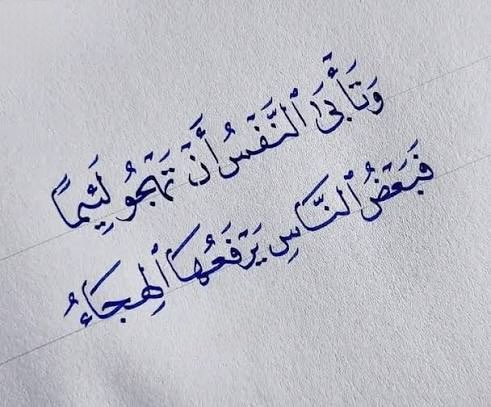 وَتَأْبَىٰ ٱلنَّفْسُ أَنْ تَهْجُو لَئِيمًا
فَبَعْضُ ٱلنَّاسِ يَرْفَعُهَا ٱلْهِجَاءُ